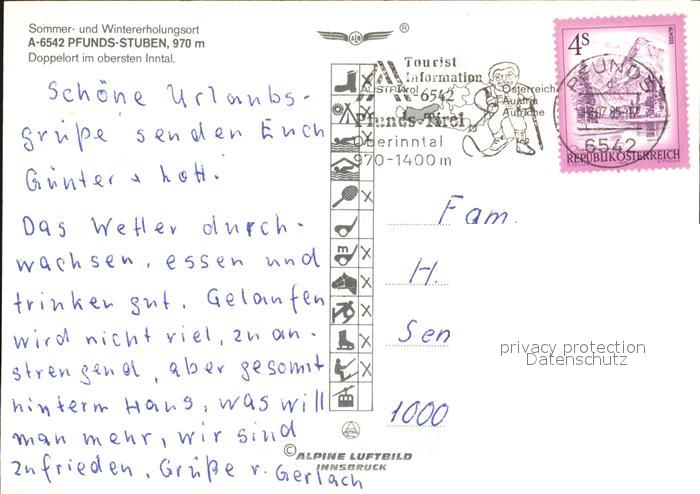 Sommer- und Wintererholungsort
A-6542 PFUNDS-STUBEN, 970 m
Doppelort im obersten Inntal.
Schöne Urlaubs-
grüße senden Euch
Günter + Lott.
Das Wetter durch-
wachsen, essen und
trinken gut. Gelaufen
wird nicht viel, zu an-
strengend, aber gesamt
hinterm Haus, was will
man mehr, wir sind
zufrieden. Grüße v. Gerlach
Tourist
Information
6542
Pfunds-Tirol
Oberinntal
970-1400 m
Österreich
Austria
Autriche
4S
PFUNDS
6542
REPUBLIK ÖSTERREICH
Fam.
H.
Sen
1000
privacy protection
Datenschutz
© ALPINE LUFTBILD
INNSBRUCK